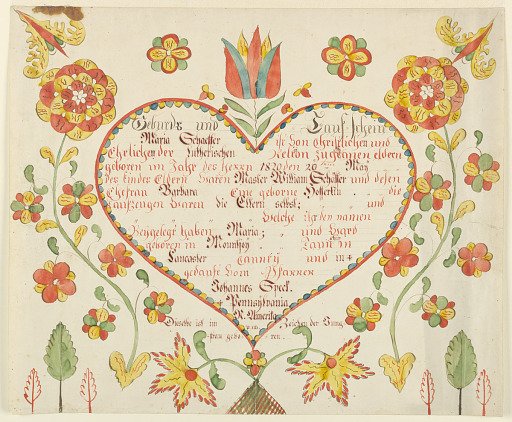 Geburts und Tauf schein
Maria Schaeffer ist Von christlichen und
Ehrlichen der Lutherischen Relein zugethanen eldern
geboren im Jahr des herrn 1820 den 20 May
des kindes Eldern waren Meister William Schäffer und desen
Ehefrau Barbara Eine geborne die
Taufzeugen waren die Eltern selbst; und
Welche Ihr den namen
Beygelegt haben Maria; und ward
geboren in Taunschip
Lancaster Caunty und in
gedauft Vom Pfarrer
Johannes Speck.
Pennsylvania
N. Amerika
Dieselbe ist im Zeichen der Jung
frau gebo ren.